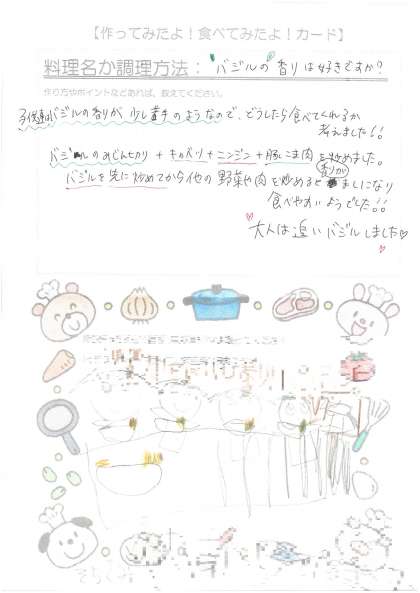 【作ってみたよ！食べてみたよ！カード】
料理名か調理方法：バジルの香りは好きですか？
作り方やポイントなどあれば、教えてください。
子供達はバジルの香りが少し苦手のようなので、どうしたら食べてくれるか
考えました!!
バジルのみじん切り + キャベツ + ニンジン + 豚こま肉を炒めました。
バジルを先に炒めてから他の野菜や肉を炒めると香りがましになり
食べやすいようでした!!
大人は追いバジルしました